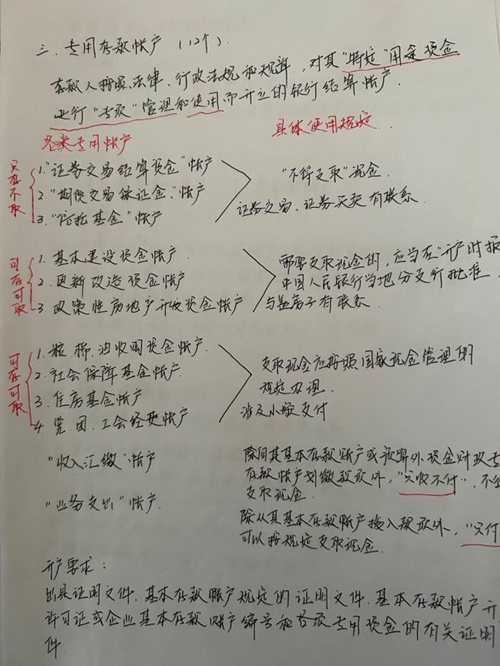 三. 专用存款帐户 (12个).
存款人按照法律、行政法规和规章, 对其"特定"用途资金
进行"专项"管理和使用而开立的银行结算帐户.
各类专用帐户
具体使用规定.
只存不取
1. "证券交易结算资金"帐户
2. "期货交易保证金"帐户
3. "信托基金"帐户
"不得支取"现金.
证券交易、证券买卖有联系
可存可取
1. 基本建设资金帐户
2. 更新改造资金帐户
3 政策性房地产开发资金帐户
需要支取现金的, 应当在"开户时报
中国人民银行当地分支行批准.
与盖房子有联系
可存可取
1. 粮、棉、油收购资金帐户.
2. 社会保障基金帐户.
3. 住房基金帐户
4. 党、团、工会经费帐户
支取现金应按照国家现金管理的
规定办理.
涉及小额支付
"收入汇缴"帐户
除向其基本存款账户或预算外资金财政专
存款帐户划缴款项外, "只收不付". 不
支取现金.
"业务支出"帐户.
除从其基本存款账户拨入款项外, "只付
可以按规定支取现金.
开户要求:
出具证明文件. 基本存款帐户规定的证明文件. 基本存款帐户开
许可证或企业基本存款账户编号和各项专用资金的有关证明
件